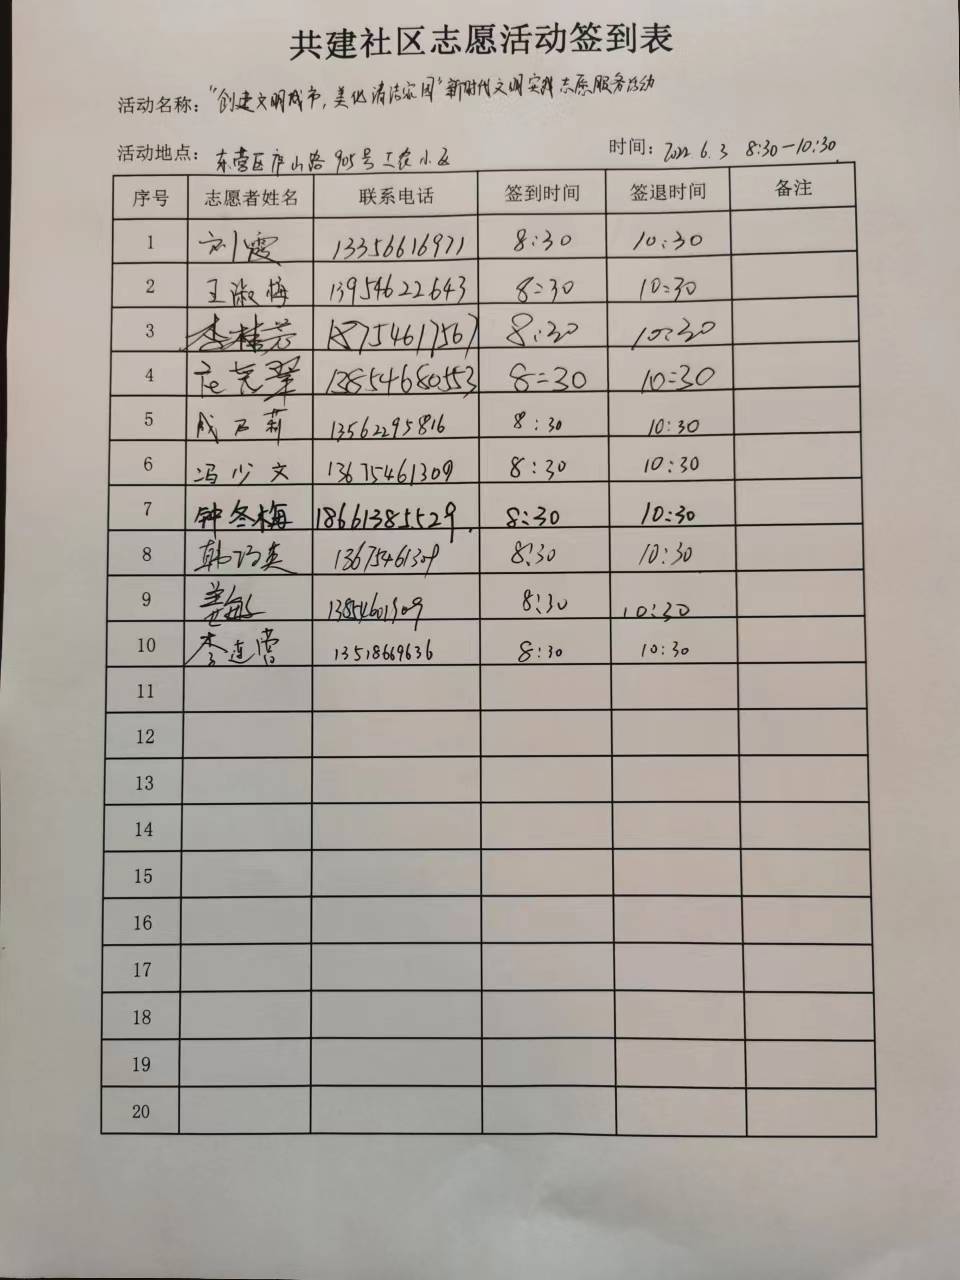 共建社区志愿活动签到表
活动名称："创建文明城市，美化清洁家园"新时代文明实践志愿服务活动
活动地点：东营区庐山路905号工农小区 时间：2022.6.3 8:30—10:30
序号 志愿者姓名 联系电话 签到时间 签退时间 备注
1 刘霞 13356616971 8:30 10:30
2 王淑梅 13954622643 8:30 10:30
3 李桂芳 18754617567 8:30 10:30
4 13854680553 8:30 10:30
5 13562295816 8:30 10:30
6 冯少文 13675461309 8:30 10:30
7 钟冬梅 18661385529 8:30 10:30
8 韩巧英 13675461309 8:30 10:30
9 13854601309 8:30 10:30
10 李连营 13518669636 8:30 10:30
11
12
13
14
15
16
17
18
19
20